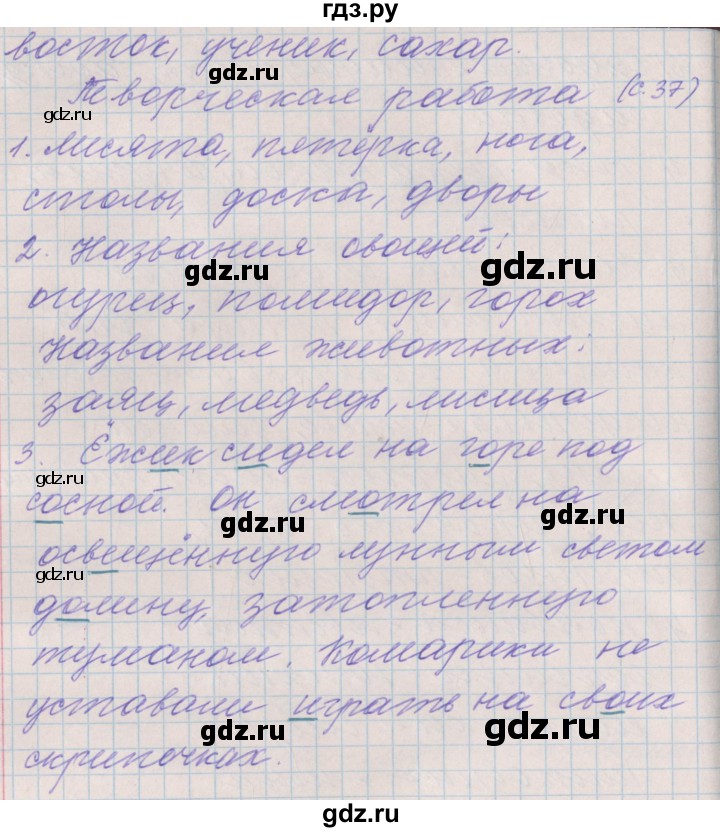 гдз.ру
восток, ученик, сахар.
gdz.ru
gdz.ru
Творческая работа (с. 37)
gdz.ru
1. Лисята, пятёрка, нога,
столы, доска, дворы
2. Названия овощей:
gdz.ru
gdz.ru
огурец, помидор, горох
Названия животных:
заяц, медведь, лисица
3. Ёжик сидел на горе под
gdz.ru
gdz.ru
сосной. Он смотрел на
gdz.ru
gdz.ru
освещённую лунным светом
gdz.ru
долину, затопленную
туманом. Комарики не
уставали играть на своих
gdz.ru
gdz.ru
скрипочках.
gdz.ru